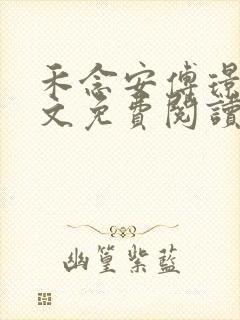 禾念安傅璟
文免費閱讀
幽篁紫藍